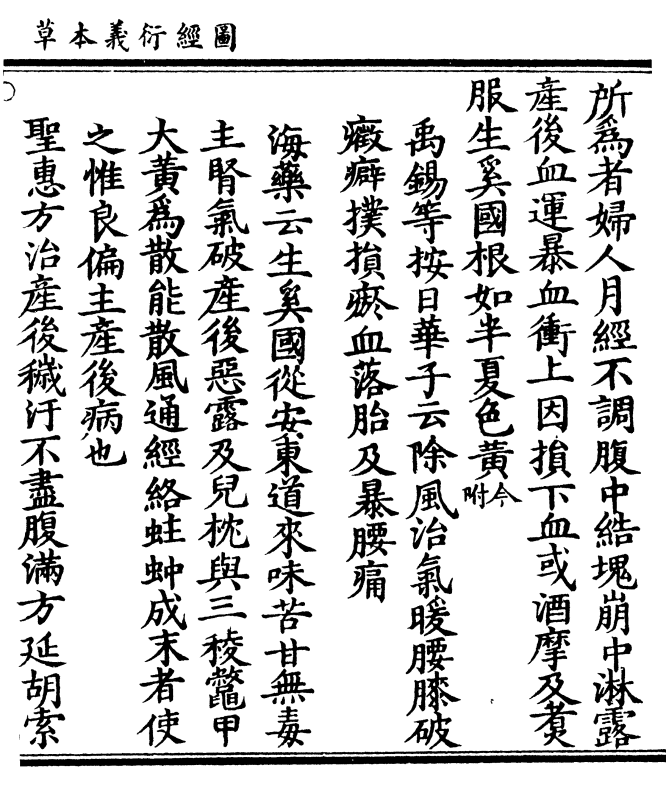 圖經衍義本草
所爲者婦人月經不調腹中結塊崩中淋露
產後血運暴血衝上因損下血或酒摩及煑
服生奚國根如半夏色黃今附
禹錫等按日華子云除風治氣暖腰膝破
癥癖撲損瘀血落胎及暴腰痛
海藥云生奚國從安東道來味苦甘無毒
主腎氣破產後惡露及兒枕與三稜鼈甲
大黃爲散能散風通經絡蛀蚛成末者使
之惟良偏主產後病也
聖惠方治產後穢汙不盡腹滿方延胡索